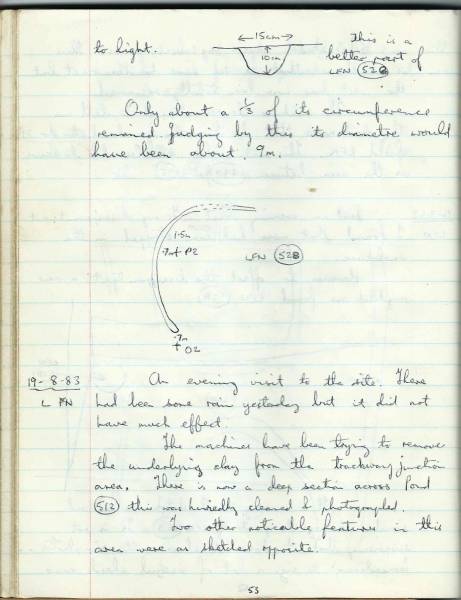 to light.
← 15cm →
10cm
This is a
better part of
LFN 528
Only about a 1/3 of its circumference
remained. Judging by this its diametre would
have been about. 9m.
1.5m
.7m + P2
LFN 528
.7m
+ O2
19-8-83
L FN
An evening visit to the site. There
had been some rain yesterday but it did not
have much effect.
The machines have been trying to remove
the underlying clay from the trackway junction
area. There is now a deep section across Pond
512 this was hurriedly cleaned & photographed.
Two other noticable features in this
area were as sketched opposite.
53